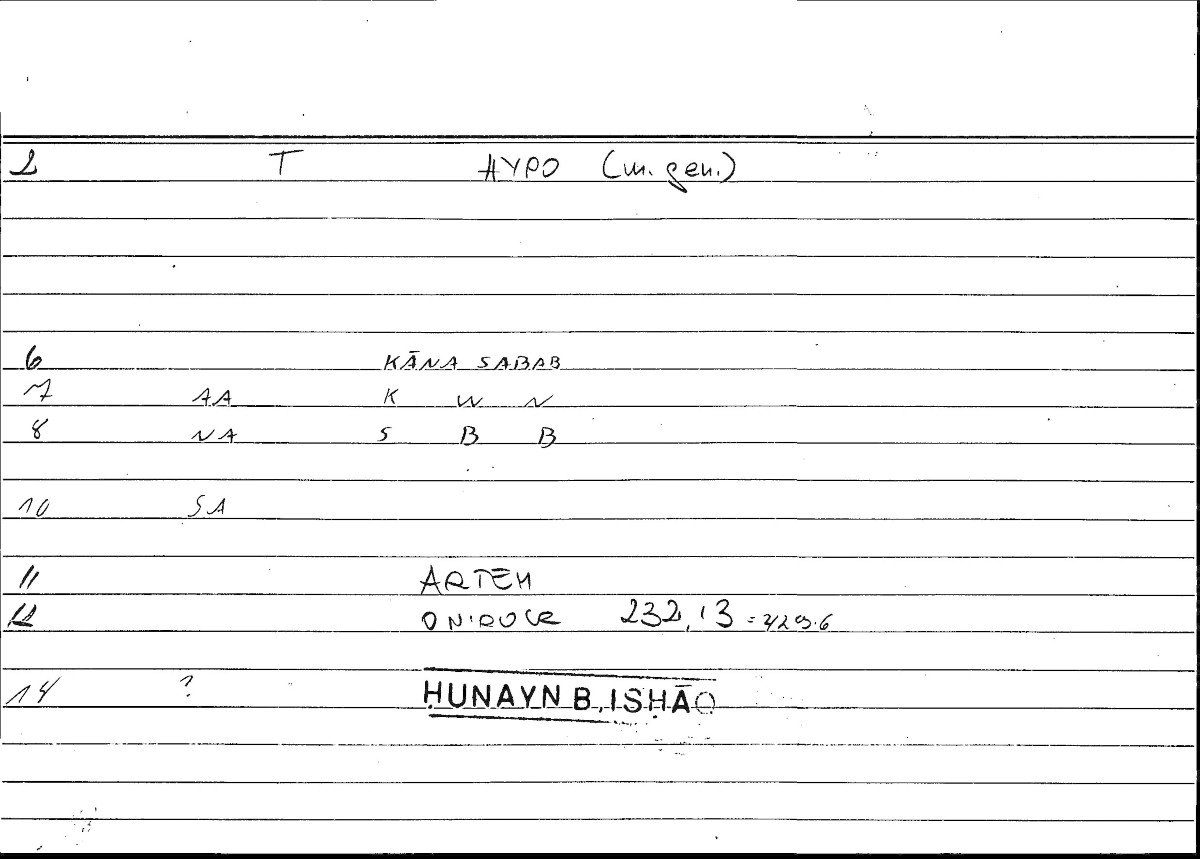 2 T HYPO (m. gen.)
6 KĀNA SABAB
7 AA K W N
8 NA S B B
10 SA
11 ARTEM
12 ONIROCR 232,13 = 429.6
14 ? ḤUNAYN B. ISḤĀQ